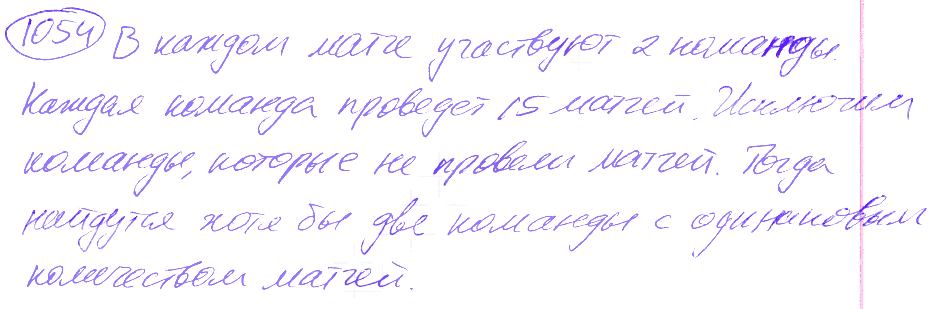 1054 В каждом матче участвуют 2 команды.
Каждая команда проведет 15 матчей. Исключим
команды, которые не провели матчей. Тогда
найдутся хотя бы две команды с одинаковым
количеством матчей.